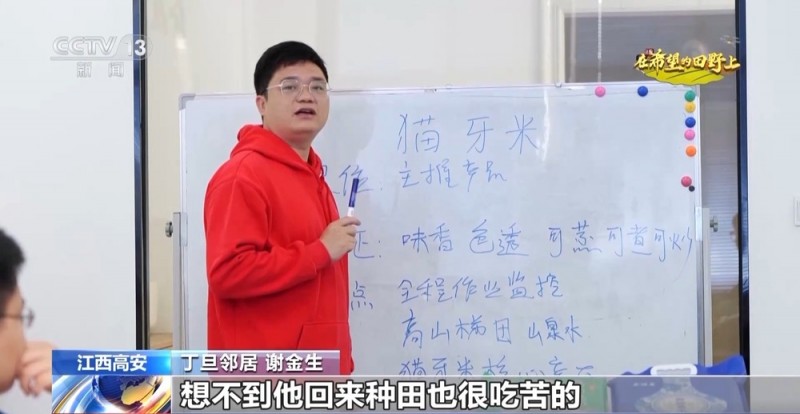 CCTV 13
新闻
在希望的田野上
猫牙米
位：主推产品
征：味香 色透 可蒸可煮可炒
点 全程作业监控
高山梯田 山泉水
猫牙米
江西高安
丁旦邻居 谢金生
想不到他回来种田也很吃苦的